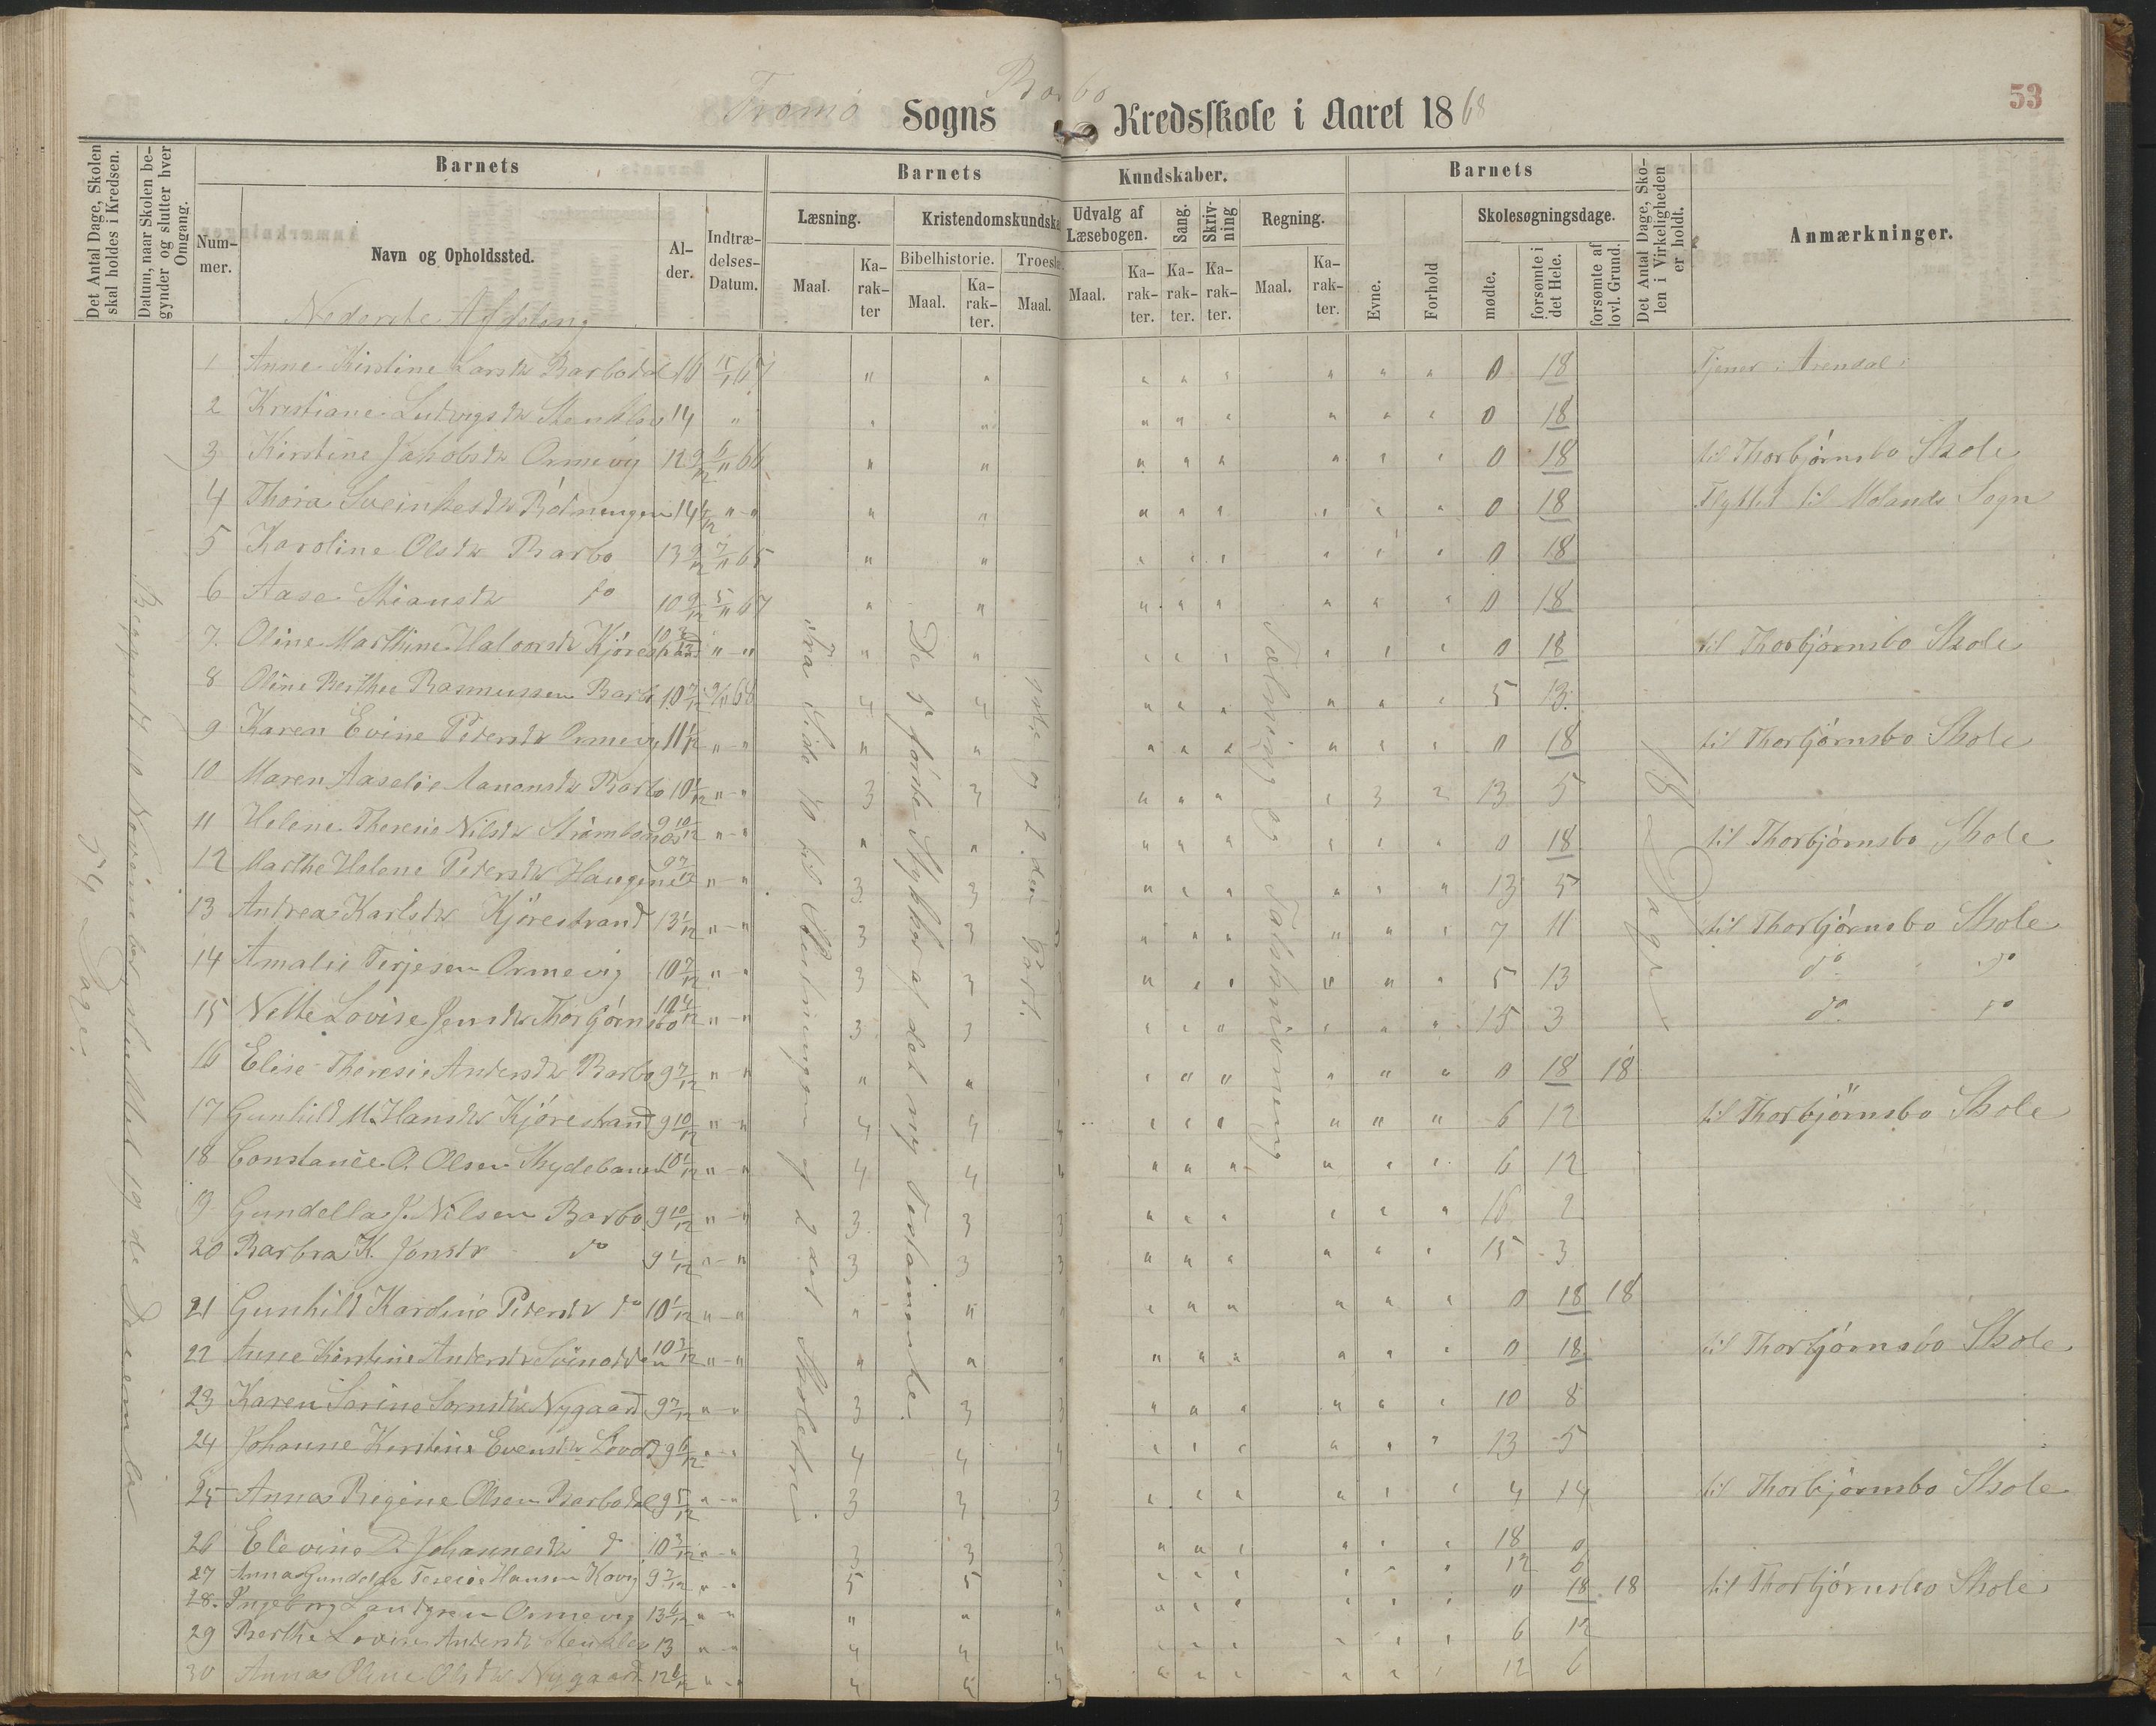 53
Tromö Sogns Barbo Kredsskole i Aaret 1868
Det Antal Dage, Skolen skal holdes i Kredsen.
Datum, naar Skolen begynder og slutter hver Omgang.
Barnets
Nummer.
Navn og Opholdssted.
Alder.
Indtrædelses-Datum.
Barnets Kundskaber.
Læsning.
Maal.
Karakter
Kristendomskundska
Bibelhistorie.
Maal.
Karakter.
Troesl
Maal.
Udvalg af Læsebogen.
Maal.
Karakter.
Sang.
Karakter.
Skrivning
Karakter.
Regning.
Maal.
Karakter.
Barnets
Evne.
Forhold
Skolesøgningsdage.
mødte.
forsømte i det Hele.
forsømte af lovl. Grund.
Det Antal Dage, Skolen i Virkeligheden er holdt.
Anmærkninger.
Nederste Afdeling
54 Dage.
Fra Side 10 til Slutningen af 2det Skoletrin
De 5 første Stykker af det ny Testamente.
Tælning og Talskrivning
18 Dage
1 Anne Kirstine Larsdtr Barbodal 16 15/1 67 " " " " " " " " 0 18 Tjener i Arendal
2 Kristiane Ludvigsdtr Stenklev 14 " " " " " " " " " 0 18
3 Kirstine Jakobsdtr Ormevig 12 9/12 6/11 66 " " " " " " " " 0 18 til Thorbjörnsbo Skole
4 Thora Sveinkesdtr Rödningen 14 "-" " " " " " " " " 0 18 Flyttet til Molands Sogn
5 Karoline Olsdtr Barbo 13 9/12 7/11 65 " " " " " " " " 0 18
6 Aase Stiansdtr do 10 9/12 5/11 67 " " " " " " " " 0 18
7. Oline Marthine Halvorsdtr Kjörestrand 10 "-" " " " " " " " " 0 18 til Thorbjörnsbo Skole
8 Oline Berthee Rasmussen Barbo 10 7/12 9/11 68 4 4 " " " " " " 5 13.
9 Karen Evine Pedersdtr Ormevig 11 1/12 "-" " " " " " " " " 0 18 til Thorbjörnsbo Skole
10 Maren Aaselie Aanonsdtr Barbo 10 1/12 "-" 3 3 " " " " 3 2 13 5
11 Helene Theresie Nilsdtr Strömbonæs 9 10/12 "-" " " " " " " " " 0 18 til Thorbjörnsbo Skole
12 Marthe Helene Pedersdtr Haugene 9 7/12 "-" 3 3 " " " " " " 13 5
13 Andrea Karlsdtr Kjörestrand 13 1/12 "-" 3 3 " " " " " " 7 11 til Thorbjörnsbo Skole
14 Amalie Terjesen Ormevig 10 7/12 "-" 3 3 " " " " " " 5 13 do do
15 Nette Lovise Jensdtr Thorbjörnsbo 10 4/12 "-" 3 3 " " " " " " 15 3 do do
16 Elise Theresie Andersdtr Barbo 9 7/12 "-" " " " " " " " " 0 18 18
17 Gunhild M. Hansdtr Kjörestrand 9 10/12 "-" 4 4 4 " " " " " " 6 12 til Thorbjörnsbo Skole
18 Constance O. Olsen Skydebanen 10 1/12 "-" 4 4 4 " " " " " " 6 12
9 Gundella J. Nilsen Barbo 9 10/12 "-" 3 3 3 " " " " " " 16 2
20 Barbra K. Jonsdtr do 9 1/12 "-" 3 3 3 " " " " " " 15 3
21 Gunhild Karoline Pedersdtr do 10 1/12 "-" " " " " " " " " " 0 18 18
22 Anne Kirstine Andersdtr Svinodden 10 3/12 "-" " " " " " " " " " 0 18 til Thorbjörnsbo Skole
23 Karen Sarine Sørnsdtr Nygaard 9 7/12 "-" 3 3 3 " " " " " " 10 8
24 Johanne Kirstine Evensdtr Lövold 9 6/12 "-" 4 4 4 " " " " " " 13 5
25 Anna Regine Olsen Barbodal 9 5/12 "-" 3 3 3 " " " " " " 4 14 til Thorbjörnsbo Skole
26 Elevine D. Johannesdtr do 10 3/12 "-" 3 3 3 " " " " " " 18 0
27 Anna Gundelde Teresie Hansen Kovig 9 7/12 "-" 5 5 " " " " " " 12 6
28. Ingeborg Landgren Ormevig 13 6/12 "-" " " " " " " " " " 0 18 18 til Thorbjörnsbo Skole
29 Berthe Lovise Andersdtr Stenklev 13 "-" 4 4 4 " " " " " " 6 12
30 Anna Oline Olsdtr Nygaard 12 6/12 "-" 4 4 4 " " " " " " 12 6